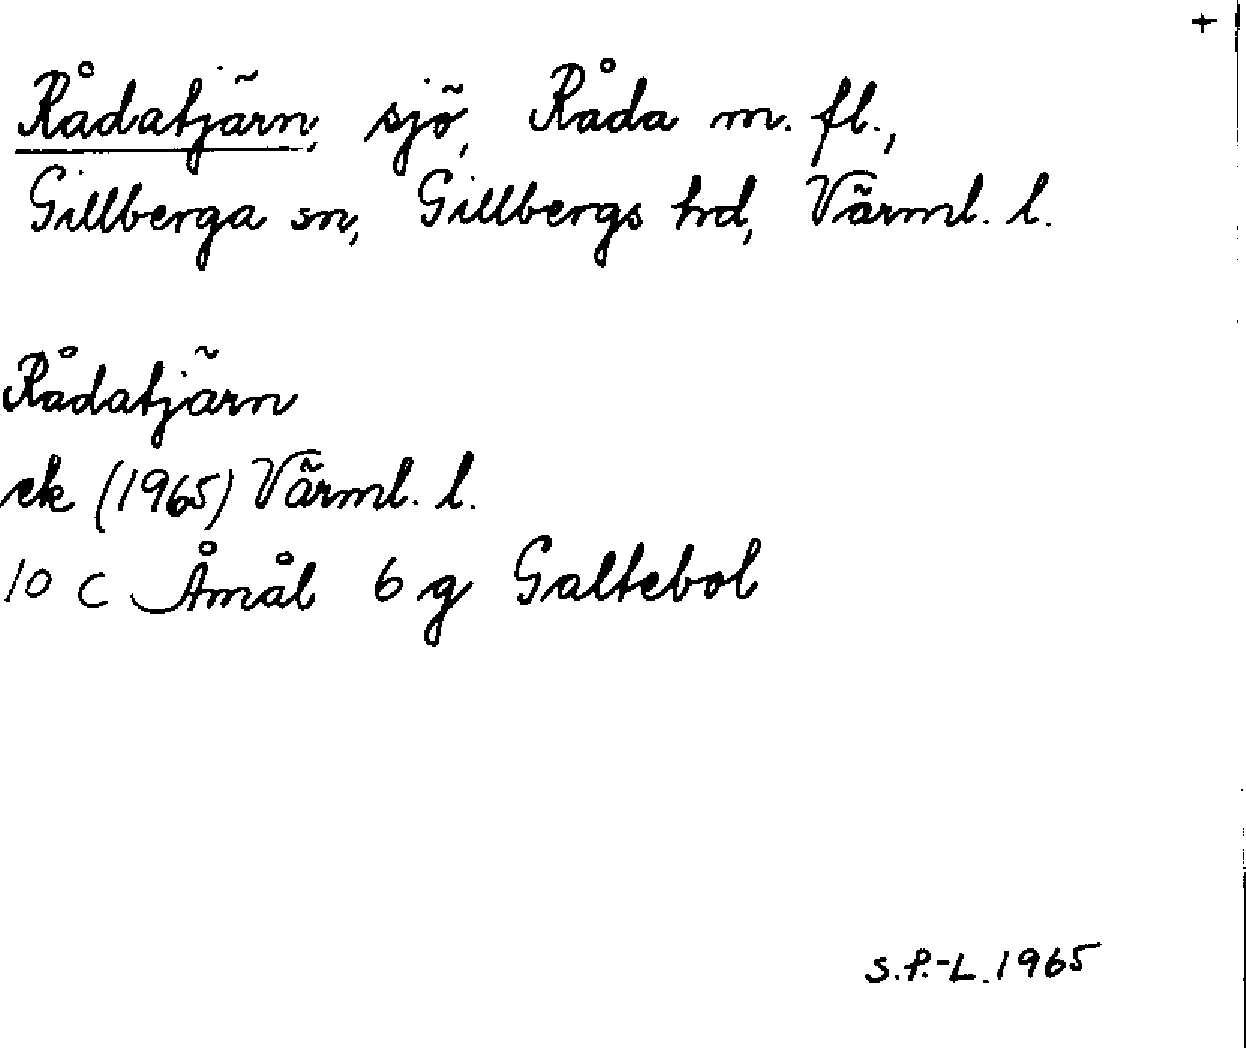 +
Rådatjärn, sjö, Råda m. fl.,
Gillberga sn, Gillbergs hd, Värml. l.
Rådatjärn
ek (1965) Värml. l.
10 C Åmål 6 g Galtebol
S.P.-L. 1965